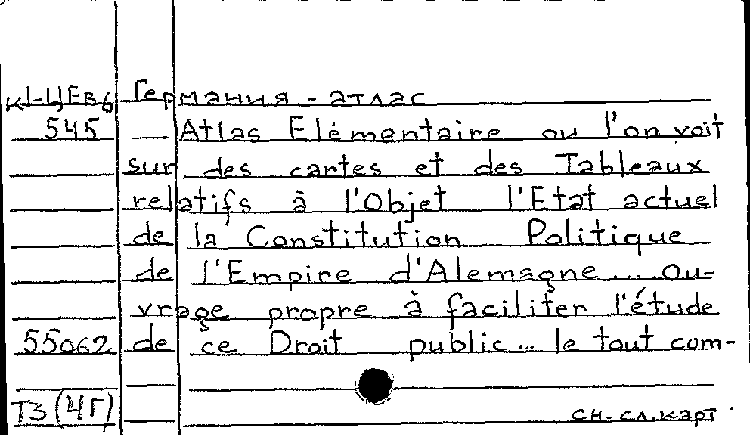 К1-ЦЕв6 Германия - атлас
545 — Atlas Elémentaire ou l'on voit
sur des cartes et des Tableaux
relatifs à l'Objet l'Etat actuel
de la Constitution Politique
de l'Empire d'Alemagne.... Ou-
vrage propre à faciliter l'étude
55062 de ce Droit public... le tout com-
Т3(4Г) сн-сл.карт.